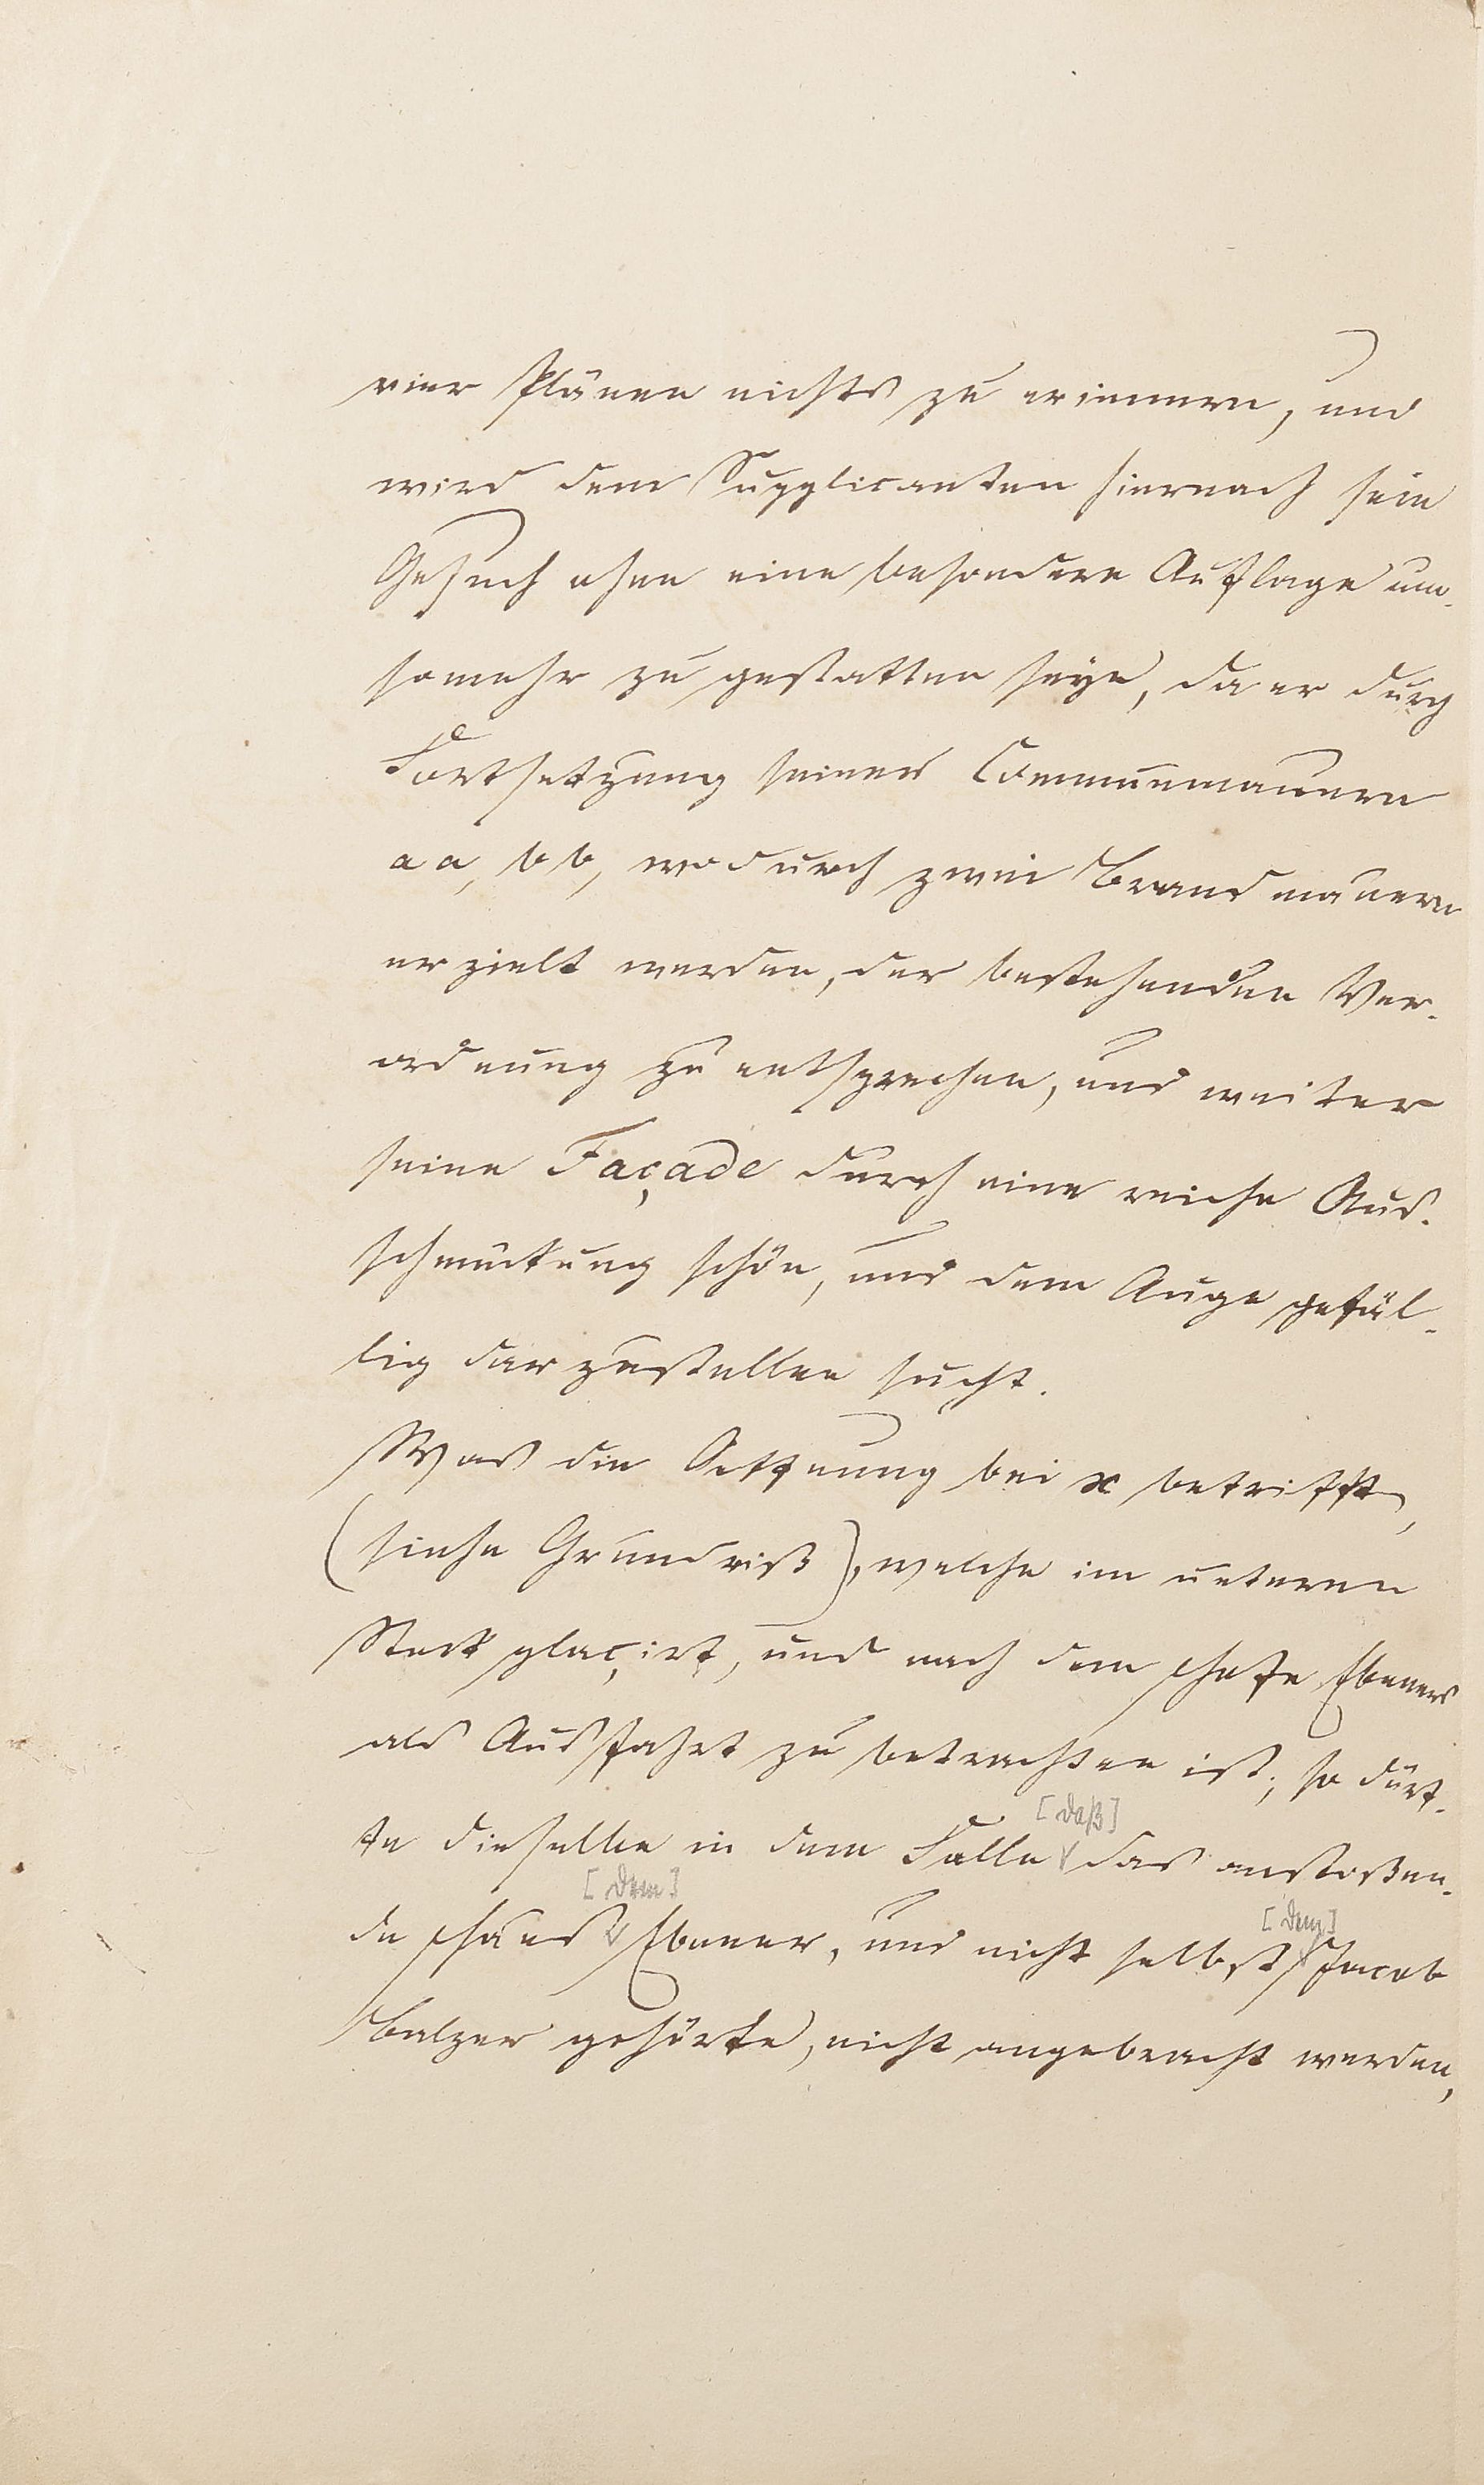 vier Plänen nichts zu erinnern, und
wird dem Supplicanten hiernach sein
Gesuch ohne eine besondere Auflage um-
somehr zu gestatten seye, da er durch
Fortsetzung seiner Communmauern
a a, b b, wodurch zwei Brandmauern
erzielt werden, der bestehenden Ver-
ordnung zu entsprechen, und weiter
seine Façade durch eine reiche Aus-
schmückung schön, und dem Auge gefäl-
lig darzustellen sucht.
Was die Oeffnung bei x betrifft,
(siehe Grundriß), welche im unteren
Stock plaçirt, und nach dem Hofe Ebeners
als Ausfahrt zu betrachten ist, so dürf-
[daß]
te dieselbe in dem Falle das anstoßen-
[dem] [dem]
de Haus Ebener, und nicht selbst Jacob
Balzer gehörte, nicht angebracht werden,